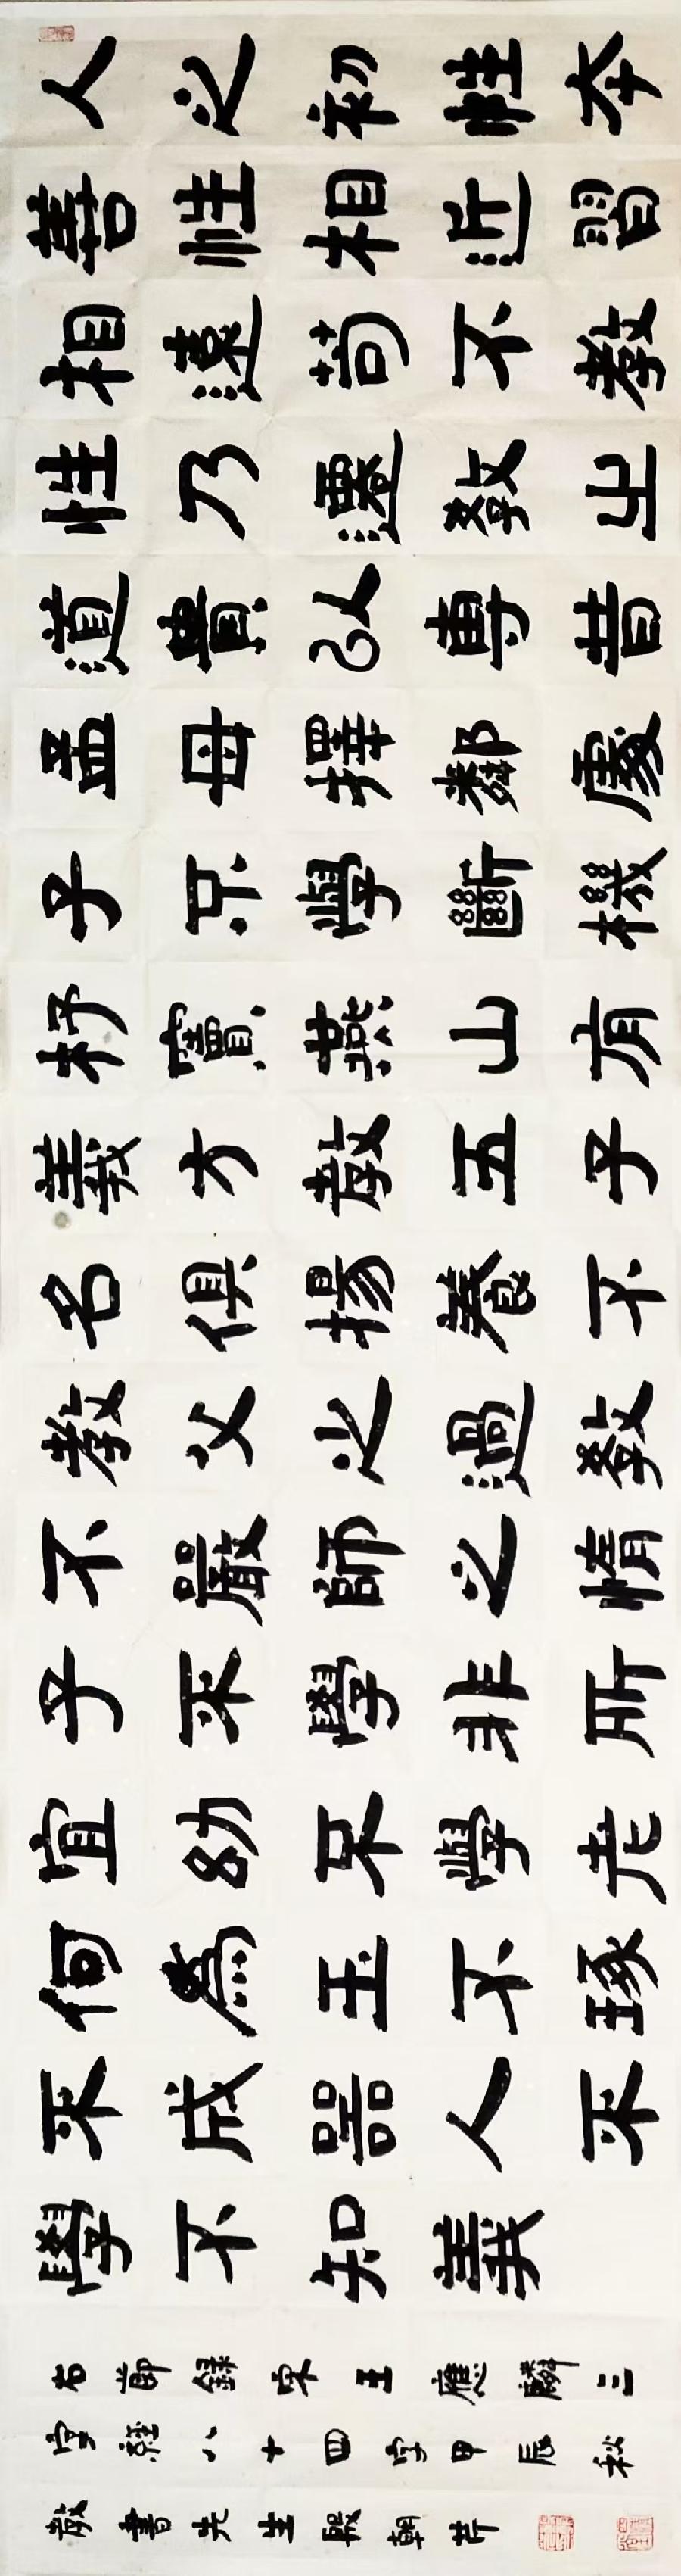 人之初性本
善性相近習
相遠苟不教
性乃遷教之
道貴以專昔
孟母擇鄰處
子不學斷機
杼竇燕山有
義方教五子
名俱揚養不
教父之過教
不嚴師之惰
子不學非所
宜幼不學老
何為玉不琢
不成器人不
學不知義
右節錄宋王應麟三
字經八十四字甲辰秋
散書先生殷朝芹